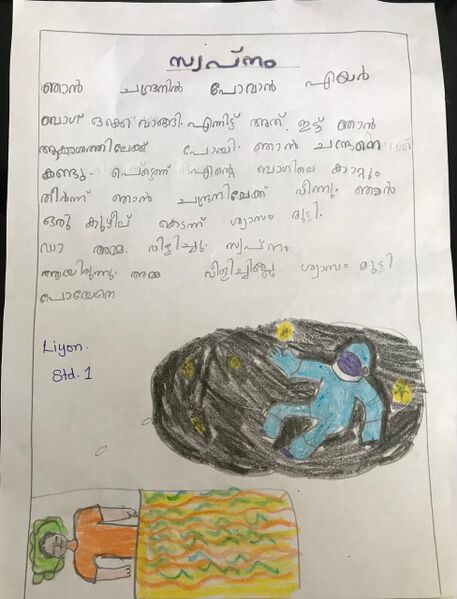 സ്വപ്നം
ഞാൻ ചന്ദ്രനിൽ പോവാൻ എയർ
ബാഗ് ഒക്കെ വാങ്ങി. എന്നിട്ട് അത് ഇട്ട് ഞാൻ
ആകാശത്തിലേക്ക് പോയി. ഞാൻ ചന്ദ്രനെ
കണ്ടു. പെട്ടെന്ന് എന്റെ ബാഗിലെ കാറ്റും
തീർന്ന് ഞാൻ ചന്ദ്രനിലേക്ക് വീണു. ഞാൻ
ഒരു കുഴീല് കെടന്ന് ശ്വാസം മുട്ടി.
ഡാ അമ്മ വിളിച്ചു. സ്വപ്നം
ആയിരുന്നു. അമ്മ വിളിച്ചില്ലേ ശ്വാസം മുട്ടി
പോയേനെ
Liyon.
Std. 1